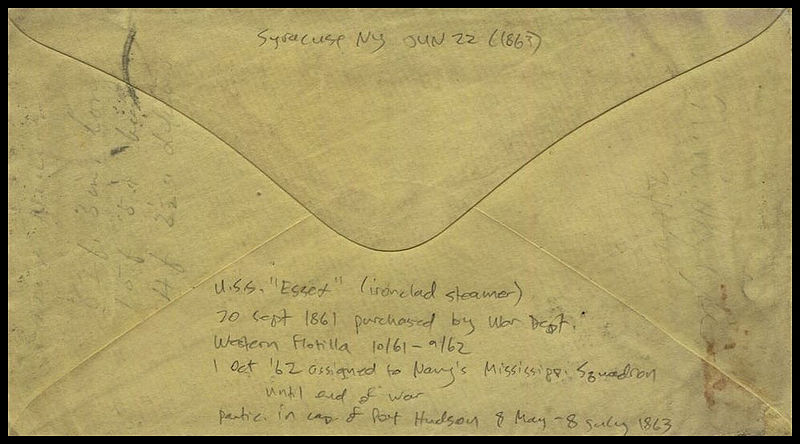 Syracuse NY JUN 22 (1863)
U.S.S. "Essex" (ironclad steamer)
20 Sept 1861 purchased by War Dept.
Western Flotilla 10/61-9/62
1 Oct '62 assigned to Navy's Mississipp. Squadron
until end of war
partic. in cap. of Port Hudson 8 May - 8 July 1863